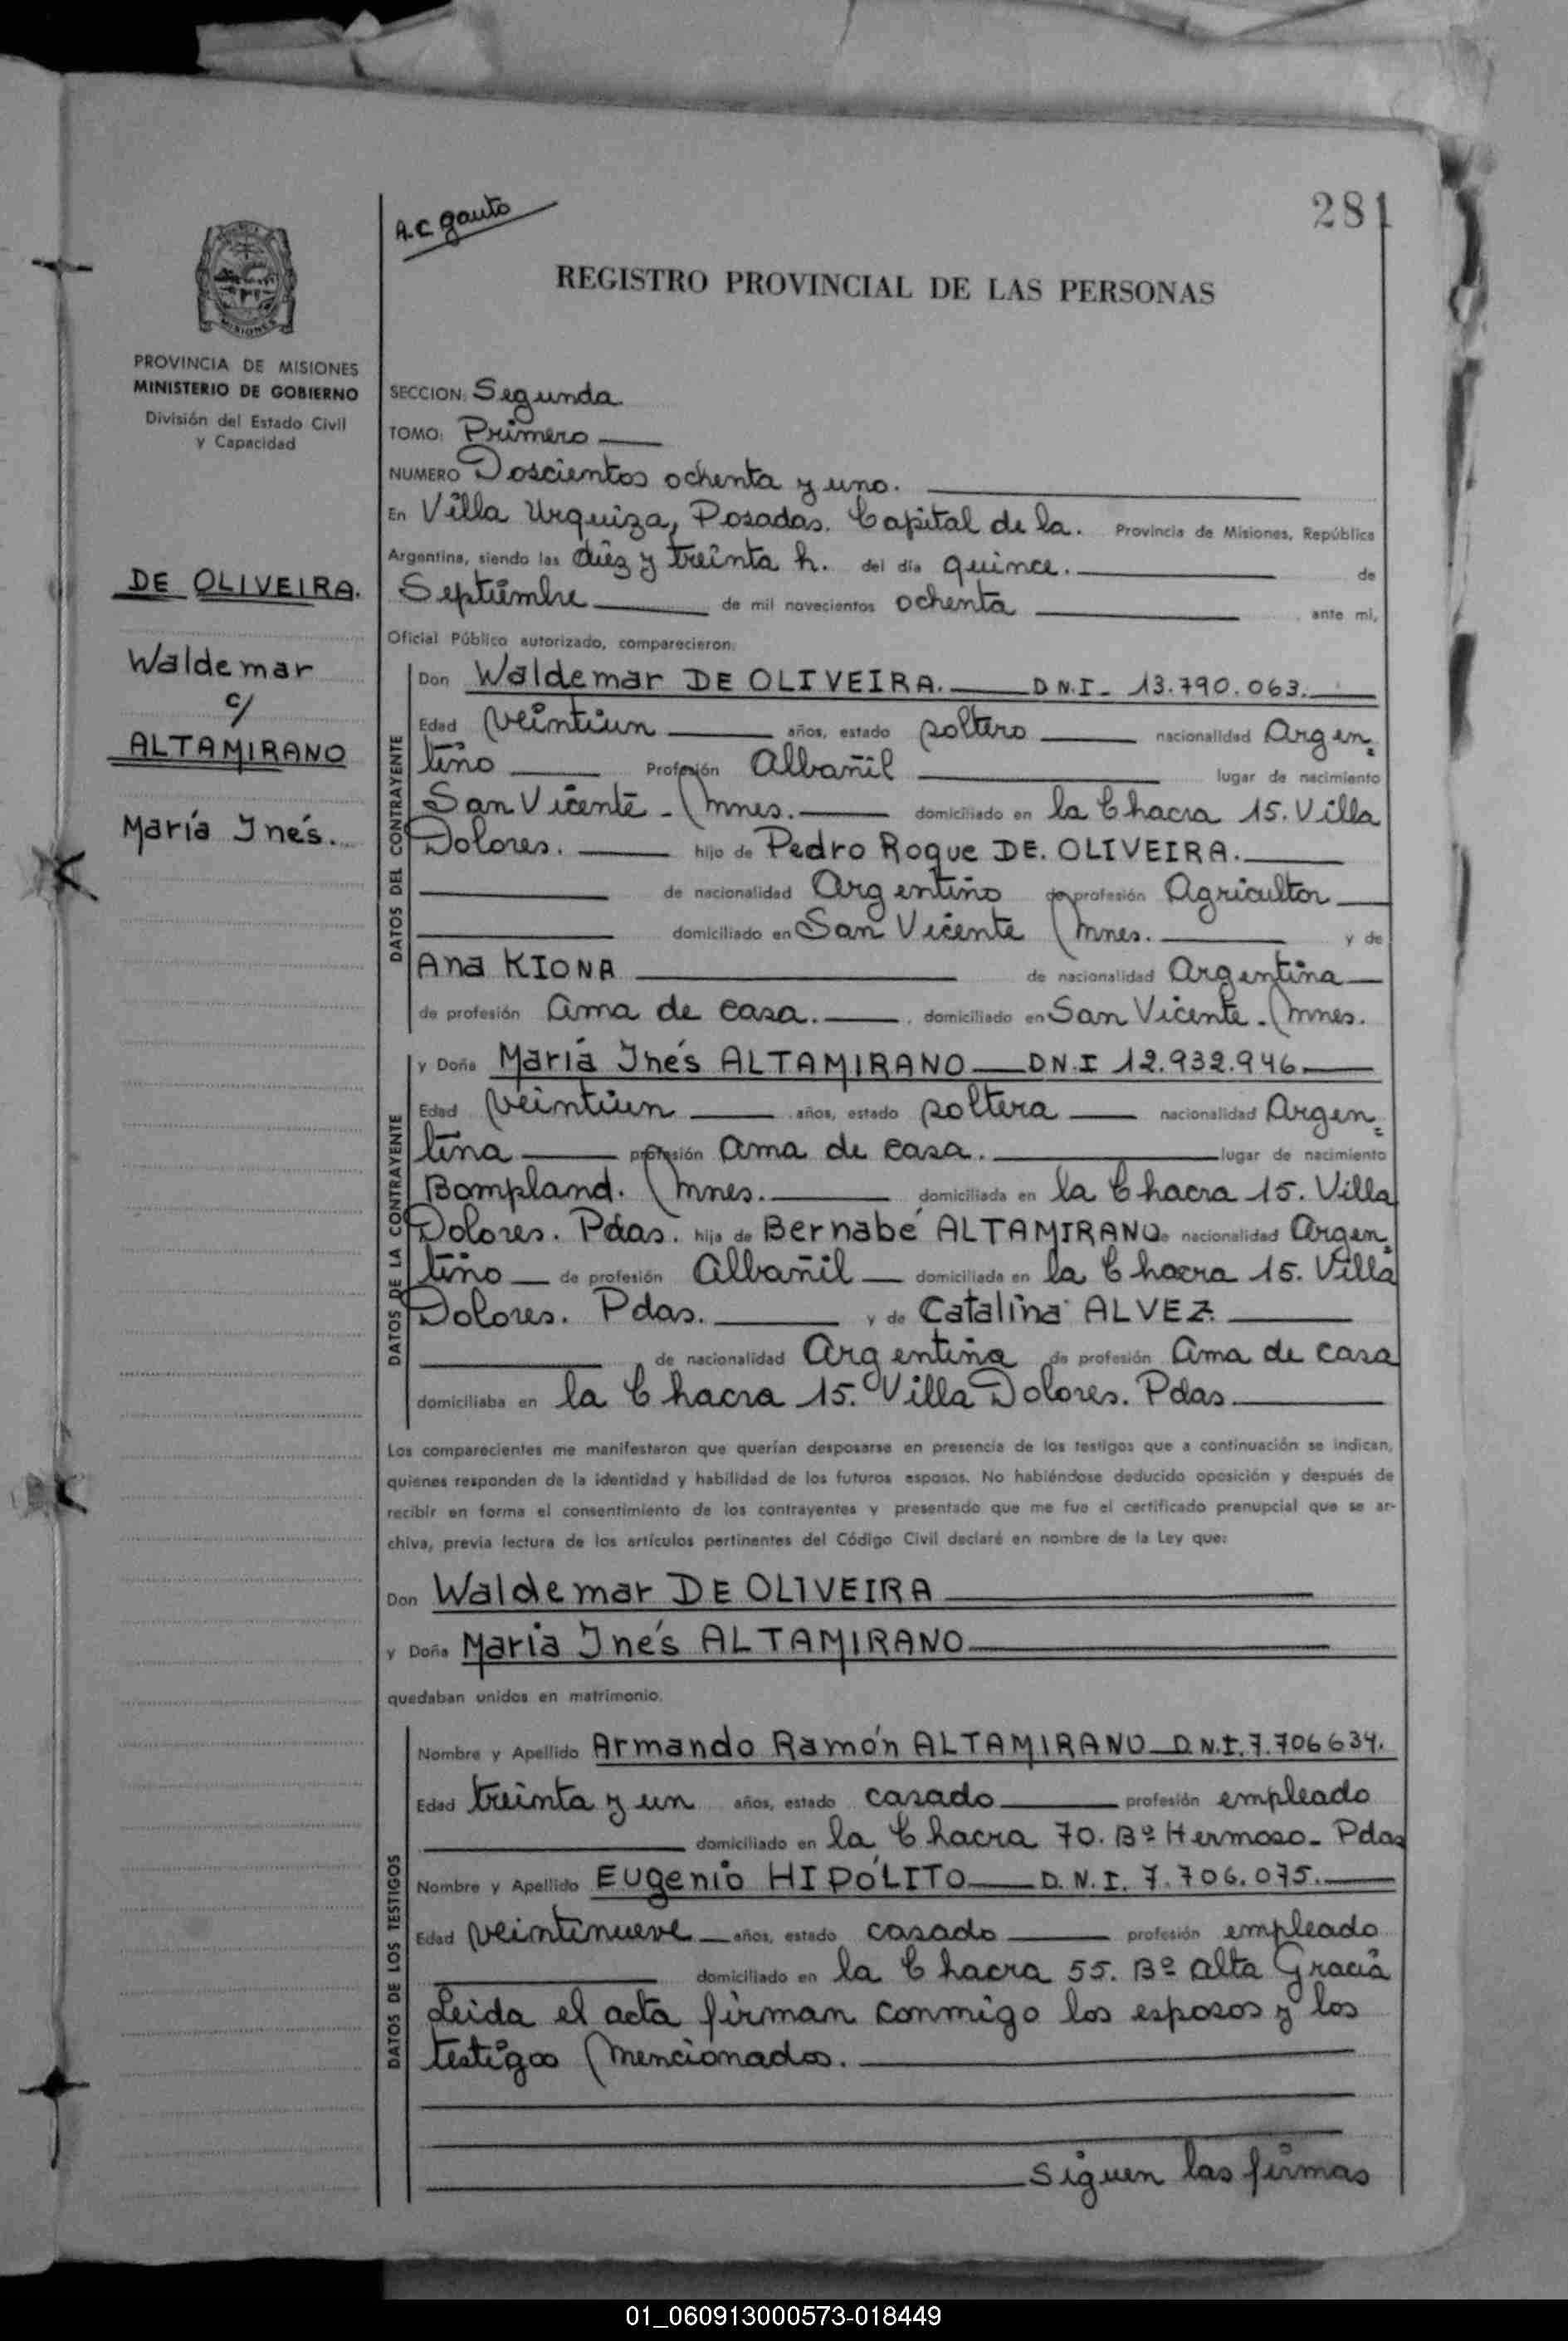 A.C. Gauto
281
REGISTRO PROVINCIAL DE LAS PERSONAS
MISIONES
PROVINCIA DE MISIONES
MINISTERIO DE GOBIERNO
División del Estado Civil
y Capacidad
DE OLIVEIRA.
Waldemar
c/
ALTAMIRANO
María Inés.
SECCION: Segunda
TOMO: Primero
NUMERO Doscientos ochenta y uno.
En Villa Urquiza, Posadas. Capital de la. Provincia de Misiones, República
Argentina, siendo las diéz y treinta h. del día quince. de
Septiembre de mil novecientos ochenta ante mí,
Oficial Público autorizado, comparecieron:
DATOS DEL CONTRAYENTE
Don Waldemar DE OLIVEIRA. D.N.I- 13.790.063.
Edad veintiun años, estado soltero nacionalidad Argen=
tino Profesión Albañil lugar de nacimiento
San Vicente - Mnes. domiciliado en la Chacra 15. Villa
Dolores. hijo de Pedro Roque DE. OLIVEIRA.
de nacionalidad Argentino de profesión Agricultor
domiciliado en San Vicente Mnes. y de
Ana KIONA de nacionalidad Argentina
de profesión ama de casa. domiciliado en San Vicente - Mnes.
DATOS DE LA CONTRAYENTE
y Doña María Inés ALTAMIRANO D.N.I 12.932.946
Edad veintiun años, estado soltera nacionalidad Argen=
tina profesión ama de casa. lugar de nacimiento
Bompland. Mnes. domiciliada en la Chacra 15. Villa
Dolores. Pdas. hija de Bernabé ALTAMIRANO de nacionalidad Argen=
tino de profesión Albañil domiciliada en la Chacra 15. Villa
Dolores. Pdas. y de Catalina ALVEZ.
de nacionalidad Argentina de profesión ama de casa
domiciliaba en la Chacra 15. Villa Dolores. Pdas.
Los comparecientes me manifestaron que querían desposarse en presencia de los testigos que a continuación se indican,
quienes responden de la identidad y habilidad de los futuros esposos. No habiéndose deducido oposición y después de
recibir en forma el consentimiento de los contrayentes y presentado que me fue el certificado prenupcial que se ar-
chiva, previa lectura de los artículos pertinentes del Código Civil declaré en nombre de la Ley que:
Don Waldemar DE OLIVEIRA
y Doña María Inés ALTAMIRANO
quedaban unidos en matrimonio.
DATOS DE LOS TESTIGOS
Nombre y Apellido Armando Ramón ALTAMIRANO D.N.I. 7.706634.
Edad treinta y un años, estado casado profesión empleado
domiciliado en la Chacra 70. Bº Hermoso - Pdas
Nombre y Apellido Eugenio HIPÓLITO D.N.I. 7.706.075.
Edad veintinueve años, estado casado profesión empleado
domiciliado en la Chacra 55. Bº Alta Gracia
Leida el acta firman conmigo los esposos y los
testigos mencionados.
Siguen las firmas
01_060913000573-018449